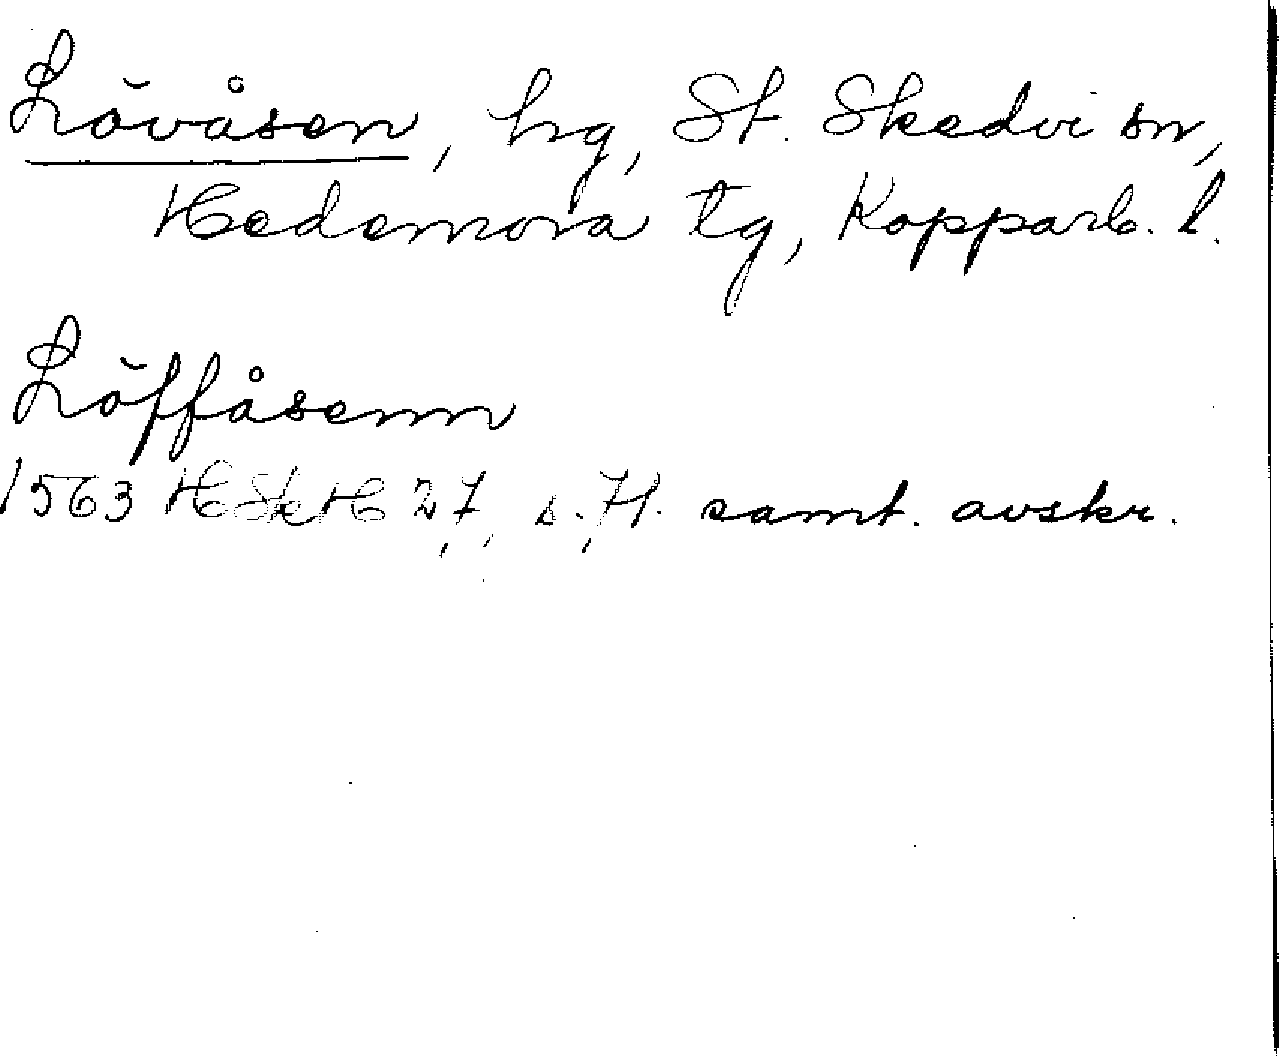 Lövåsen, hg, St. Skedvi sn,
Hedemora tg, Kopparb. l.
Löffåsenn
1563 HSkH 27, s. 71. samt. avskr.